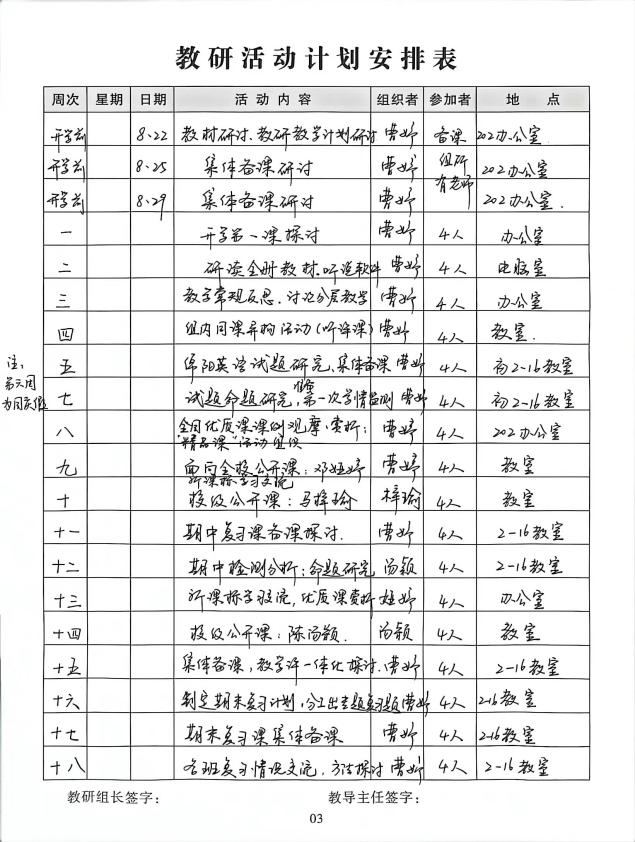 教研活动计划安排表
周次 星期 日期 活动内容 组织者 参加者 地点
开学前 8、22 教材研讨、教研教学计划研讨 曹婷 备课 202办公室
开学前 8、25 集体备课研讨 曹婷 组研 202办公室
有老师
开学前 8、29 集体备课研讨 曹婷 202办公室.
一 开学第一课探讨 曹婷 4人 办公室
二 研读全册教材、听说软件 曹婷 4人 电脑室
三 教学常规反思、讨论分层教学 曹婷 4人 办公室
四 组内同课异构活动(听评课) 曹婷 4人 教室.
注:
第六周
为国庆假
五 绵阳英语试题研究、集体备课 曹婷 4人 高2-16教室
七 试题命题研究,第一次学情监测 曹婷 4人 高2-16教室
八 全国优质课课例观摩、赏析; 曹婷 4人 202办公室
"精品课"活动组织
九 面向全校公开课: 曹婷 4人 教室
听课评学习交流
十 校级公开课:马梓瑜 梓瑜 4人 教室
十一 期中复习课备课探讨. 曹婷 4人 2-16教室
十二 期中检测分析;命题研究 4人 2-16教室
十三 优质课赏析 4人 办公室
十四 校级公开课: 4人 教室
十五 集体备课,教学评一体化探讨. 曹婷 4人 2-16教室
十六 制定期末复习计划,分工出专题复习题 曹婷 4人 2-16教室
十七 期末复习课集体备课 曹婷 4人 2-16教室
十八 各班复习情况交流,方法探讨 曹婷 4人 2-16教室
教研组长签字: 教导主任签字:
03